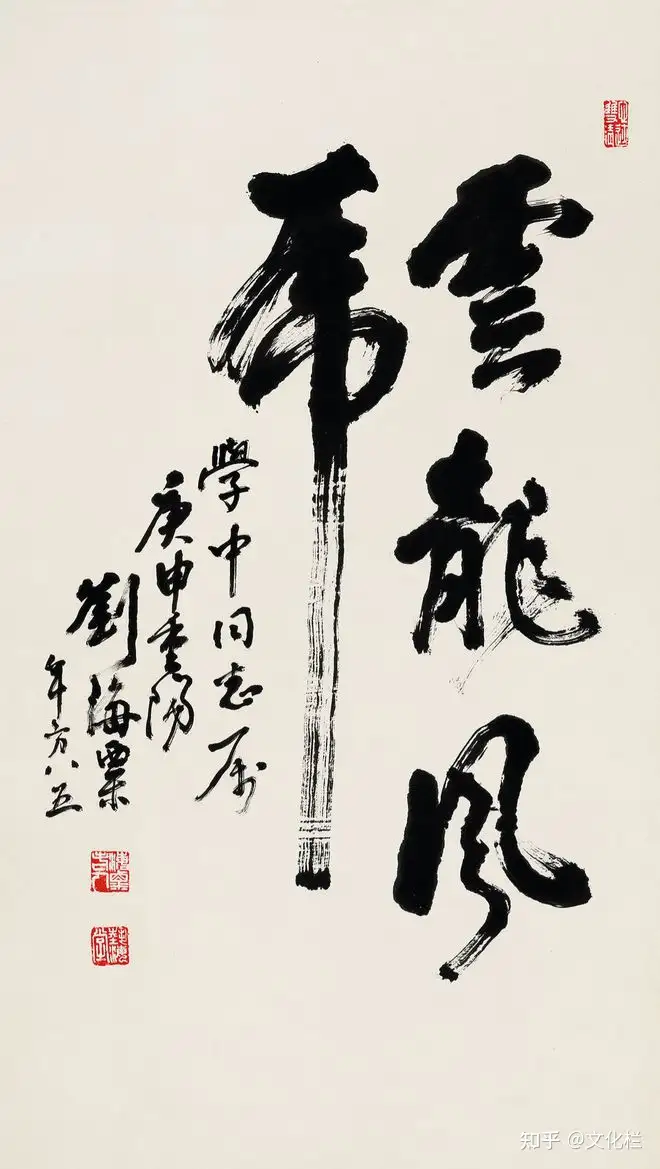 雲龍風
虎
學中同志属
庚申重陽
劉海粟
年方八五
知乎 @文化栏